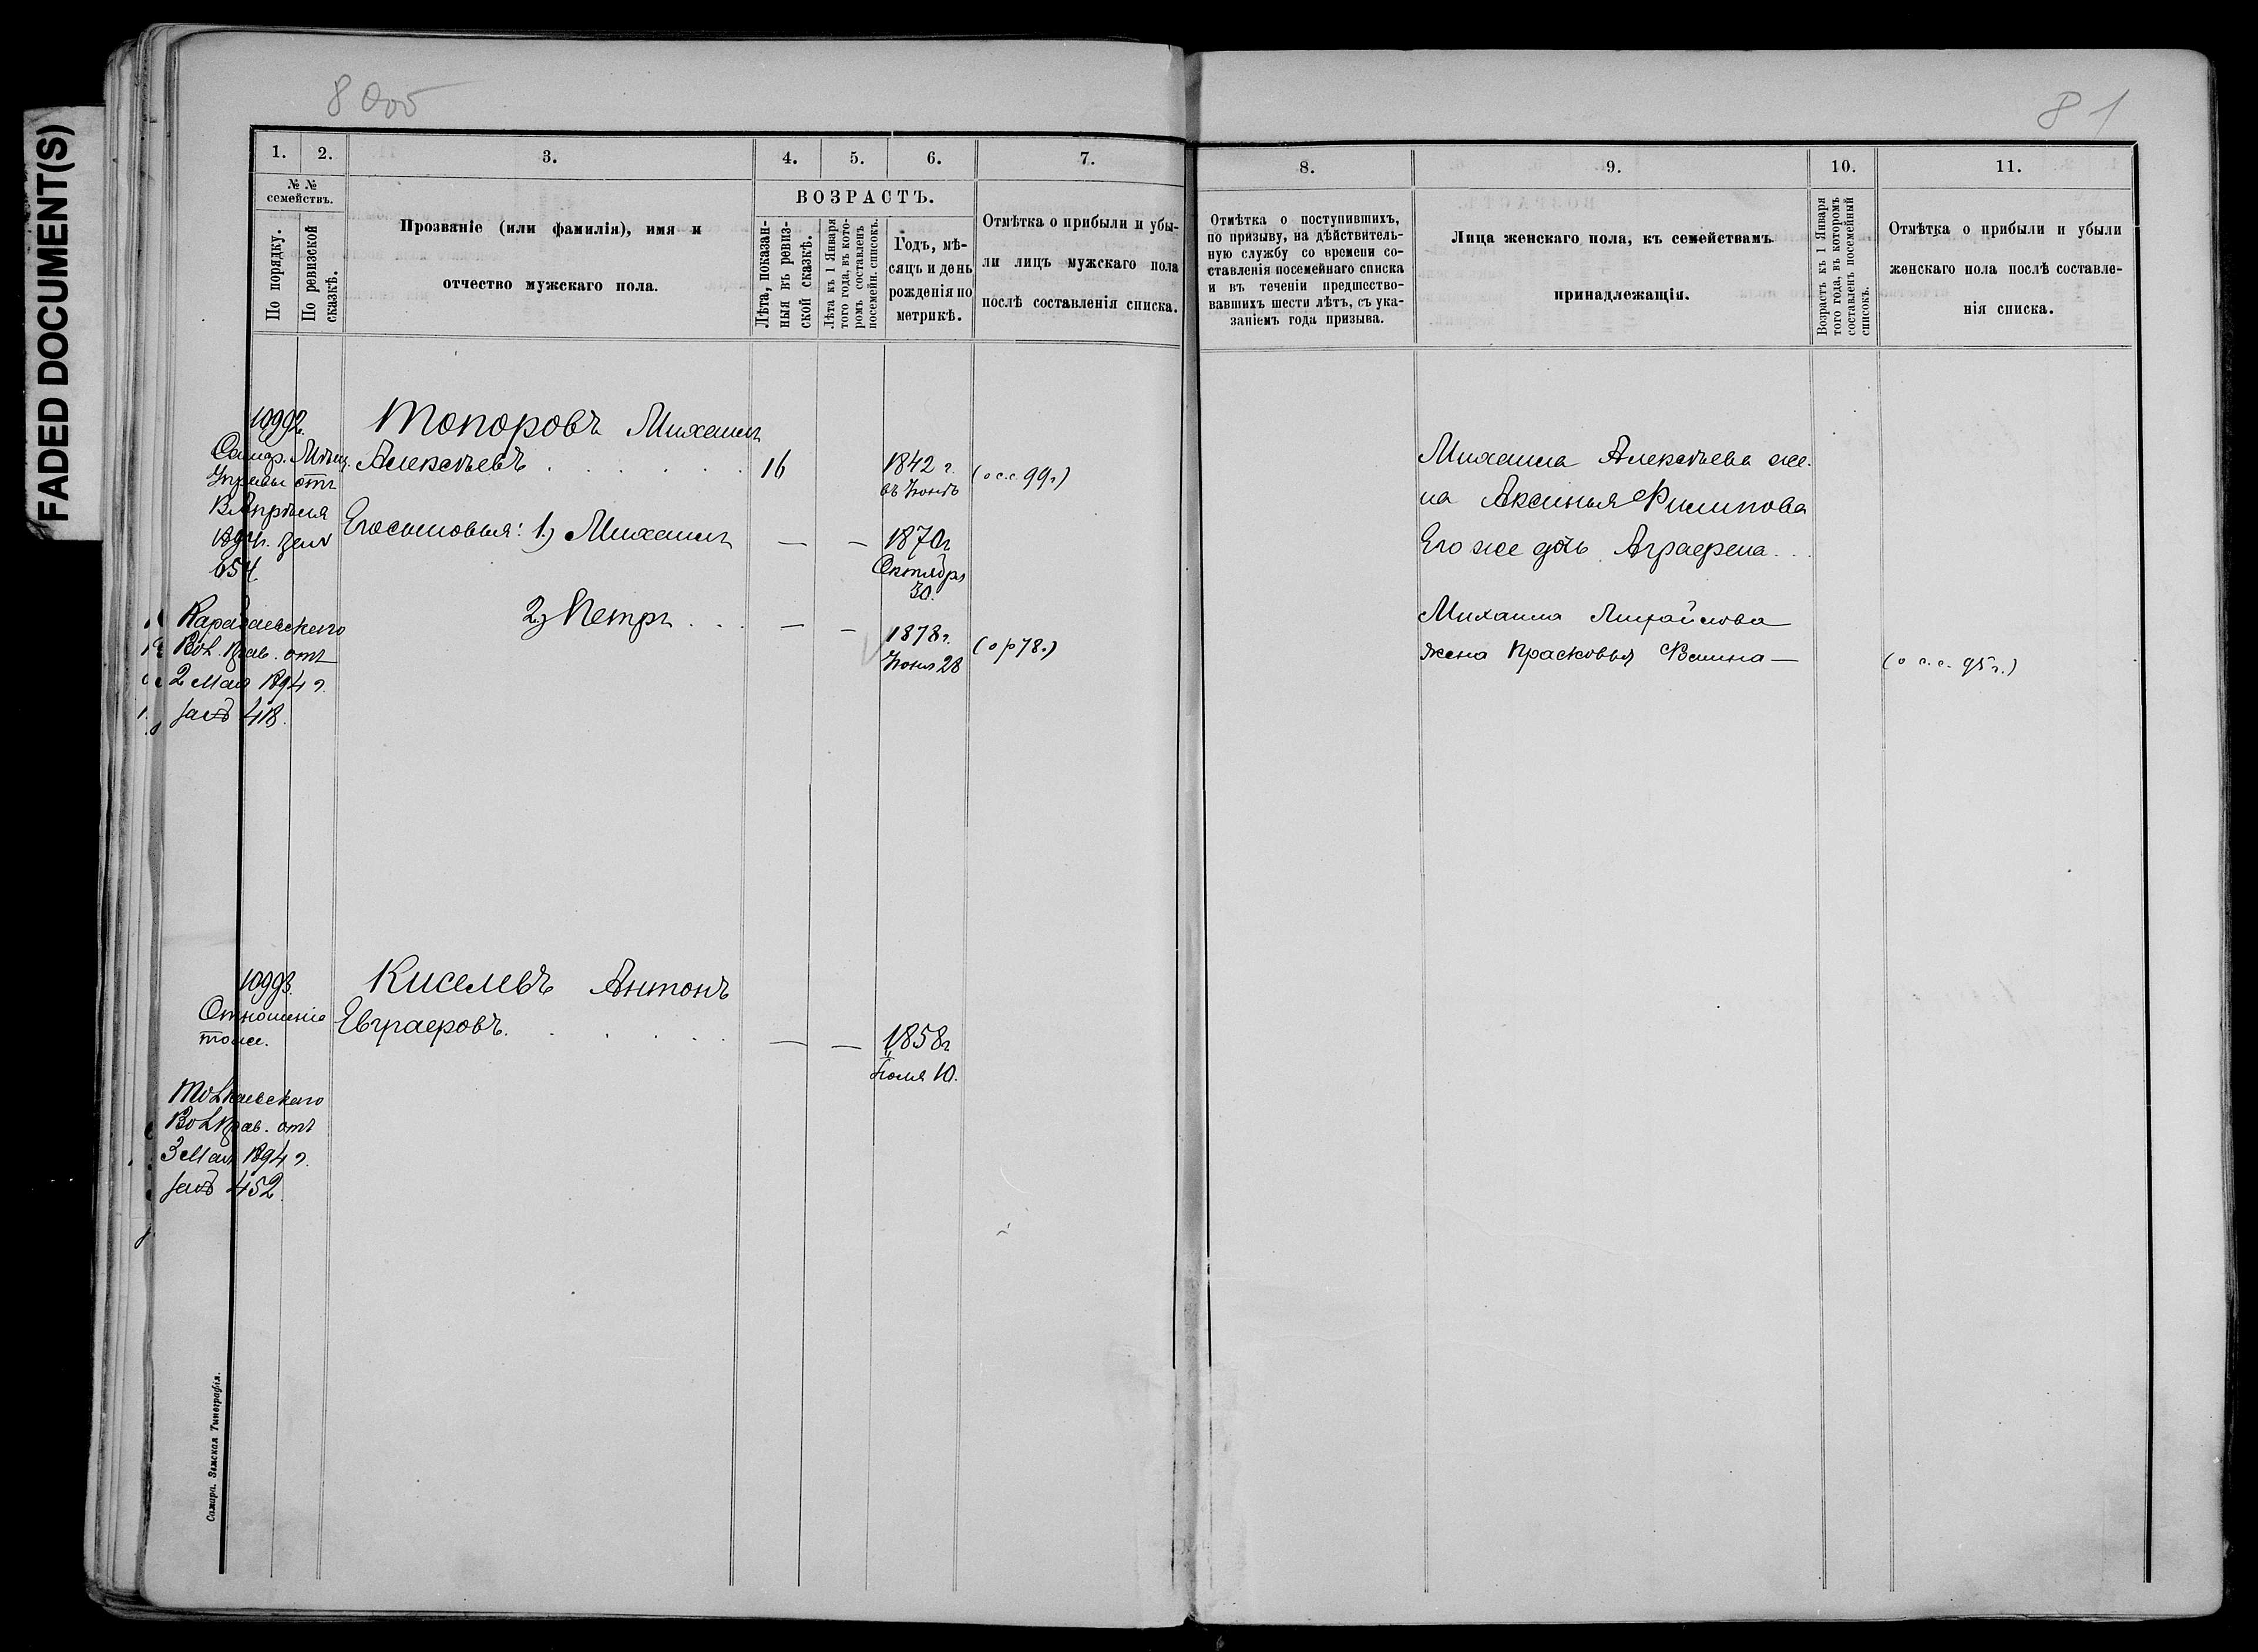 FADED DOCUMENT(S)
80 об
1.
2.
3.
4.
5.
6.
7.
№ №
семействъ.
По порядку.
По ревизской
сказкѣ.
Прозваніе (или фамилія), имя и
отчество мужскаго пола.
ВОЗРАСТЪ.
Лѣта, показан-
ныя въ ревиз-
ской сказкѣ.
Лѣта къ 1 Января
того года, въ кото-
ромъ составленъ
посемейн. списокъ.
Годъ, мѣ-
сяцъ и день
рожденія по
метрикѣ.
Отмѣтка о прибыли и убы-
ли лицъ мужскаго пола
послѣ составленія списка.
10992.
Самар. Мѣщ.
Управы отъ
Апрѣля
1894 г. за №
654.
Топоровъ Михаилъ
Алексѣевъ . . . . . . 16
1842 г.
въ Іюнѣ
(о с.с. 99 г.)
Его сыновья: 1.) Михаилъ — — 1870 г.
Октября
30.
2) Петръ . . . — — 1878 г.
Іюня 28
(о р 78.)
Вол. Прав. отъ
2 Мая 1894 г.
за № 418.
10993.
Отношеніе
тоже.
Киселевъ Антонъ
Евграфовъ. . . . . . — — 1858 г.
Іюля 10.
Толкаевскаго
Вол. Прав. отъ
3 Мая 1894 г.
за № 452.
Самара. Земская Типографія.
81
8.
9.
10.
11.
Отмѣтка о поступившихъ,
по призыву, на дѣйствитель-
ную службу со времени со-
ставленія посемейнаго списка
и въ теченіи предшество-
вавшихъ шести лѣтъ, съ ука-
заніемъ года призыва.
Лица женскаго пола, къ семействамъ
принадлежащія.
Возрастъ къ 1 Января
того года, въ которомъ
составленъ посемейный
списокъ.
Отмѣтка о прибыли и убыли
женскаго пола послѣ составле-
нія списка.
Михаила Алексѣева же-
на Аксинья Филипова
Его же дочь Аграфена . . .
Михаила Михайлова
жена Прасковья —
(о с.с. 95 г.)